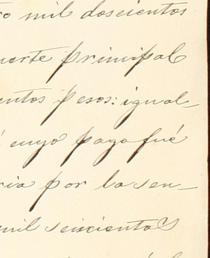 ro mil doscientos
uerte principal
entos pesos: igual-
é cuyo pago fué
ria por la sen-
mil seiscientos